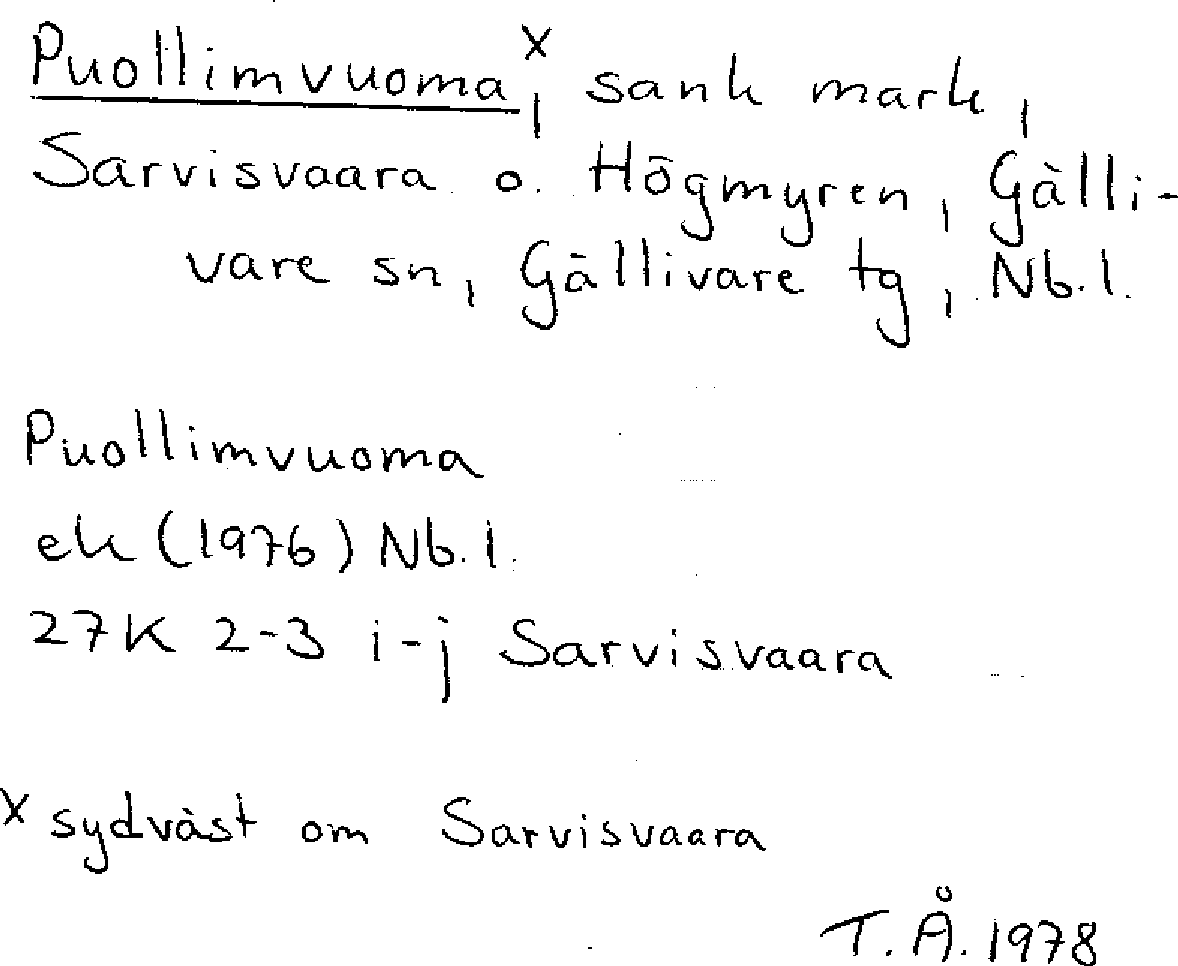 Puollimvuoma x, sank mark,
Sarvisvaara o. Högmyren, Gälli-
vare sn, Gällivare tg, Nb.l.
Puollimvuoma
ek (1976) Nb.l.
27K 2-3 i-j Sarvisvaara
x sydväst om Sarvisvaara
T.Å. 1978